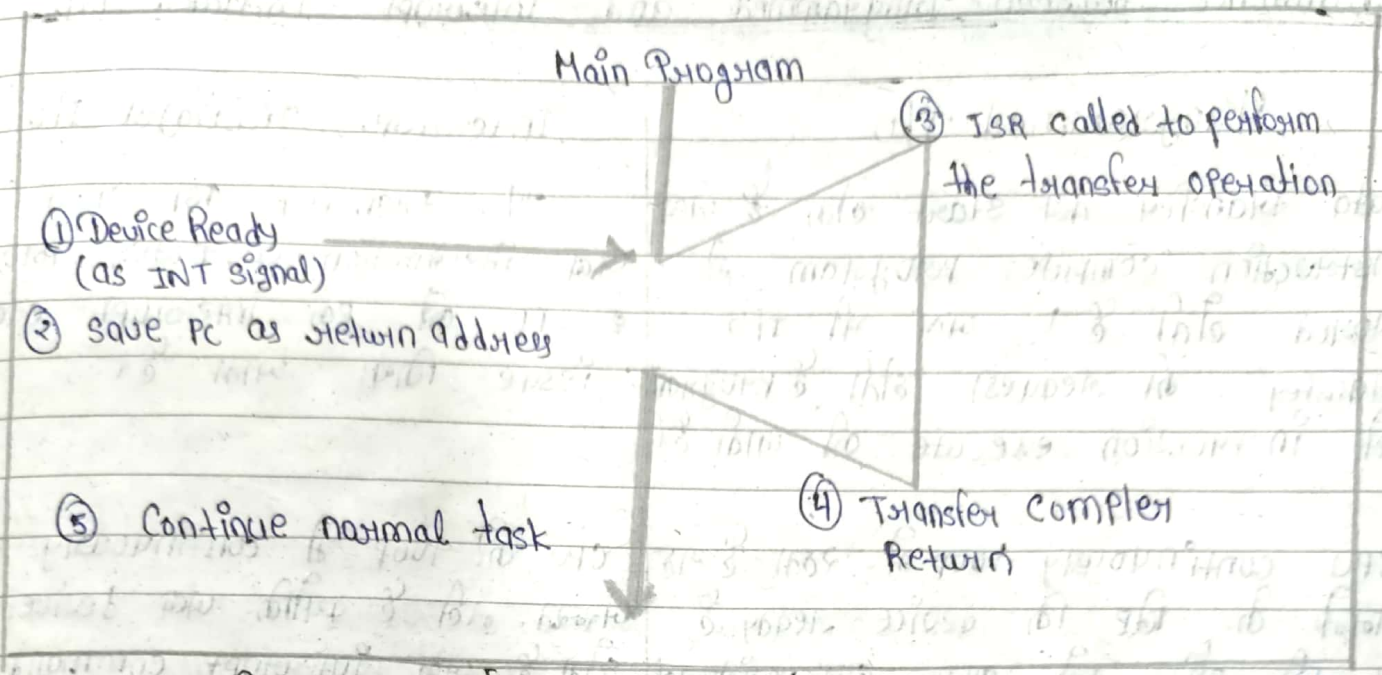 Main Program
③ ISR called to perform
the transfer operation
① Device Ready
(as INT signal)
② save PC as return address
④ Transfer Compler
Return
⑤ Continue normal task